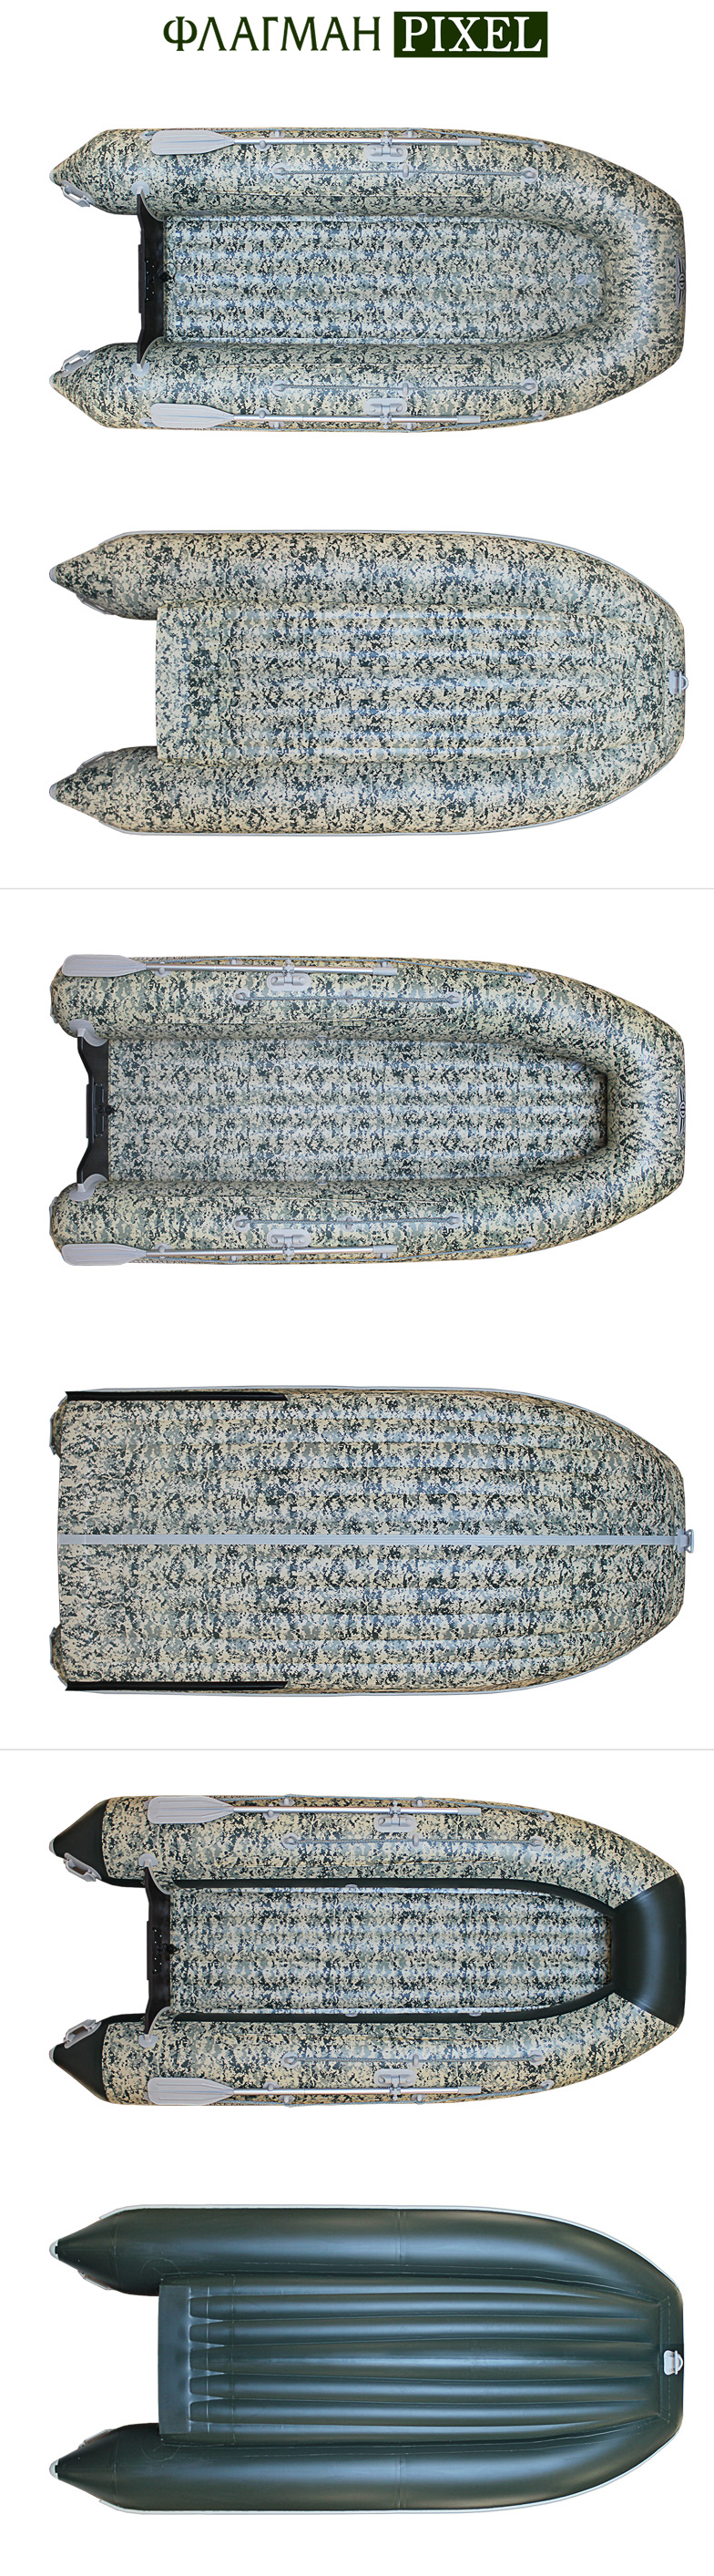 ФЛАГМАН PIXEL